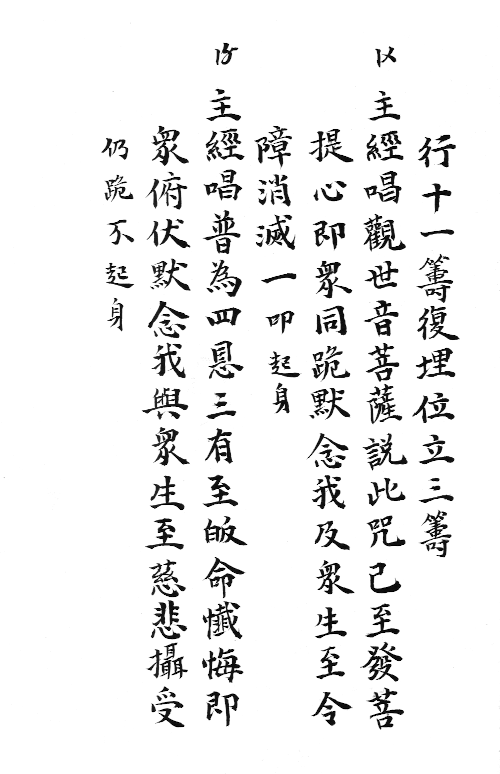 行十一籌復埋位立三籌
〡〤主經唱觀世音菩薩説此咒已至發菩
提心即衆同跪默念我及衆生至令
障消滅一叩起身
〡〥主經唱普為四恩三有至皈命懺悔即
衆俯伏默念我與衆生至慈悲攝受
仍跪不起身